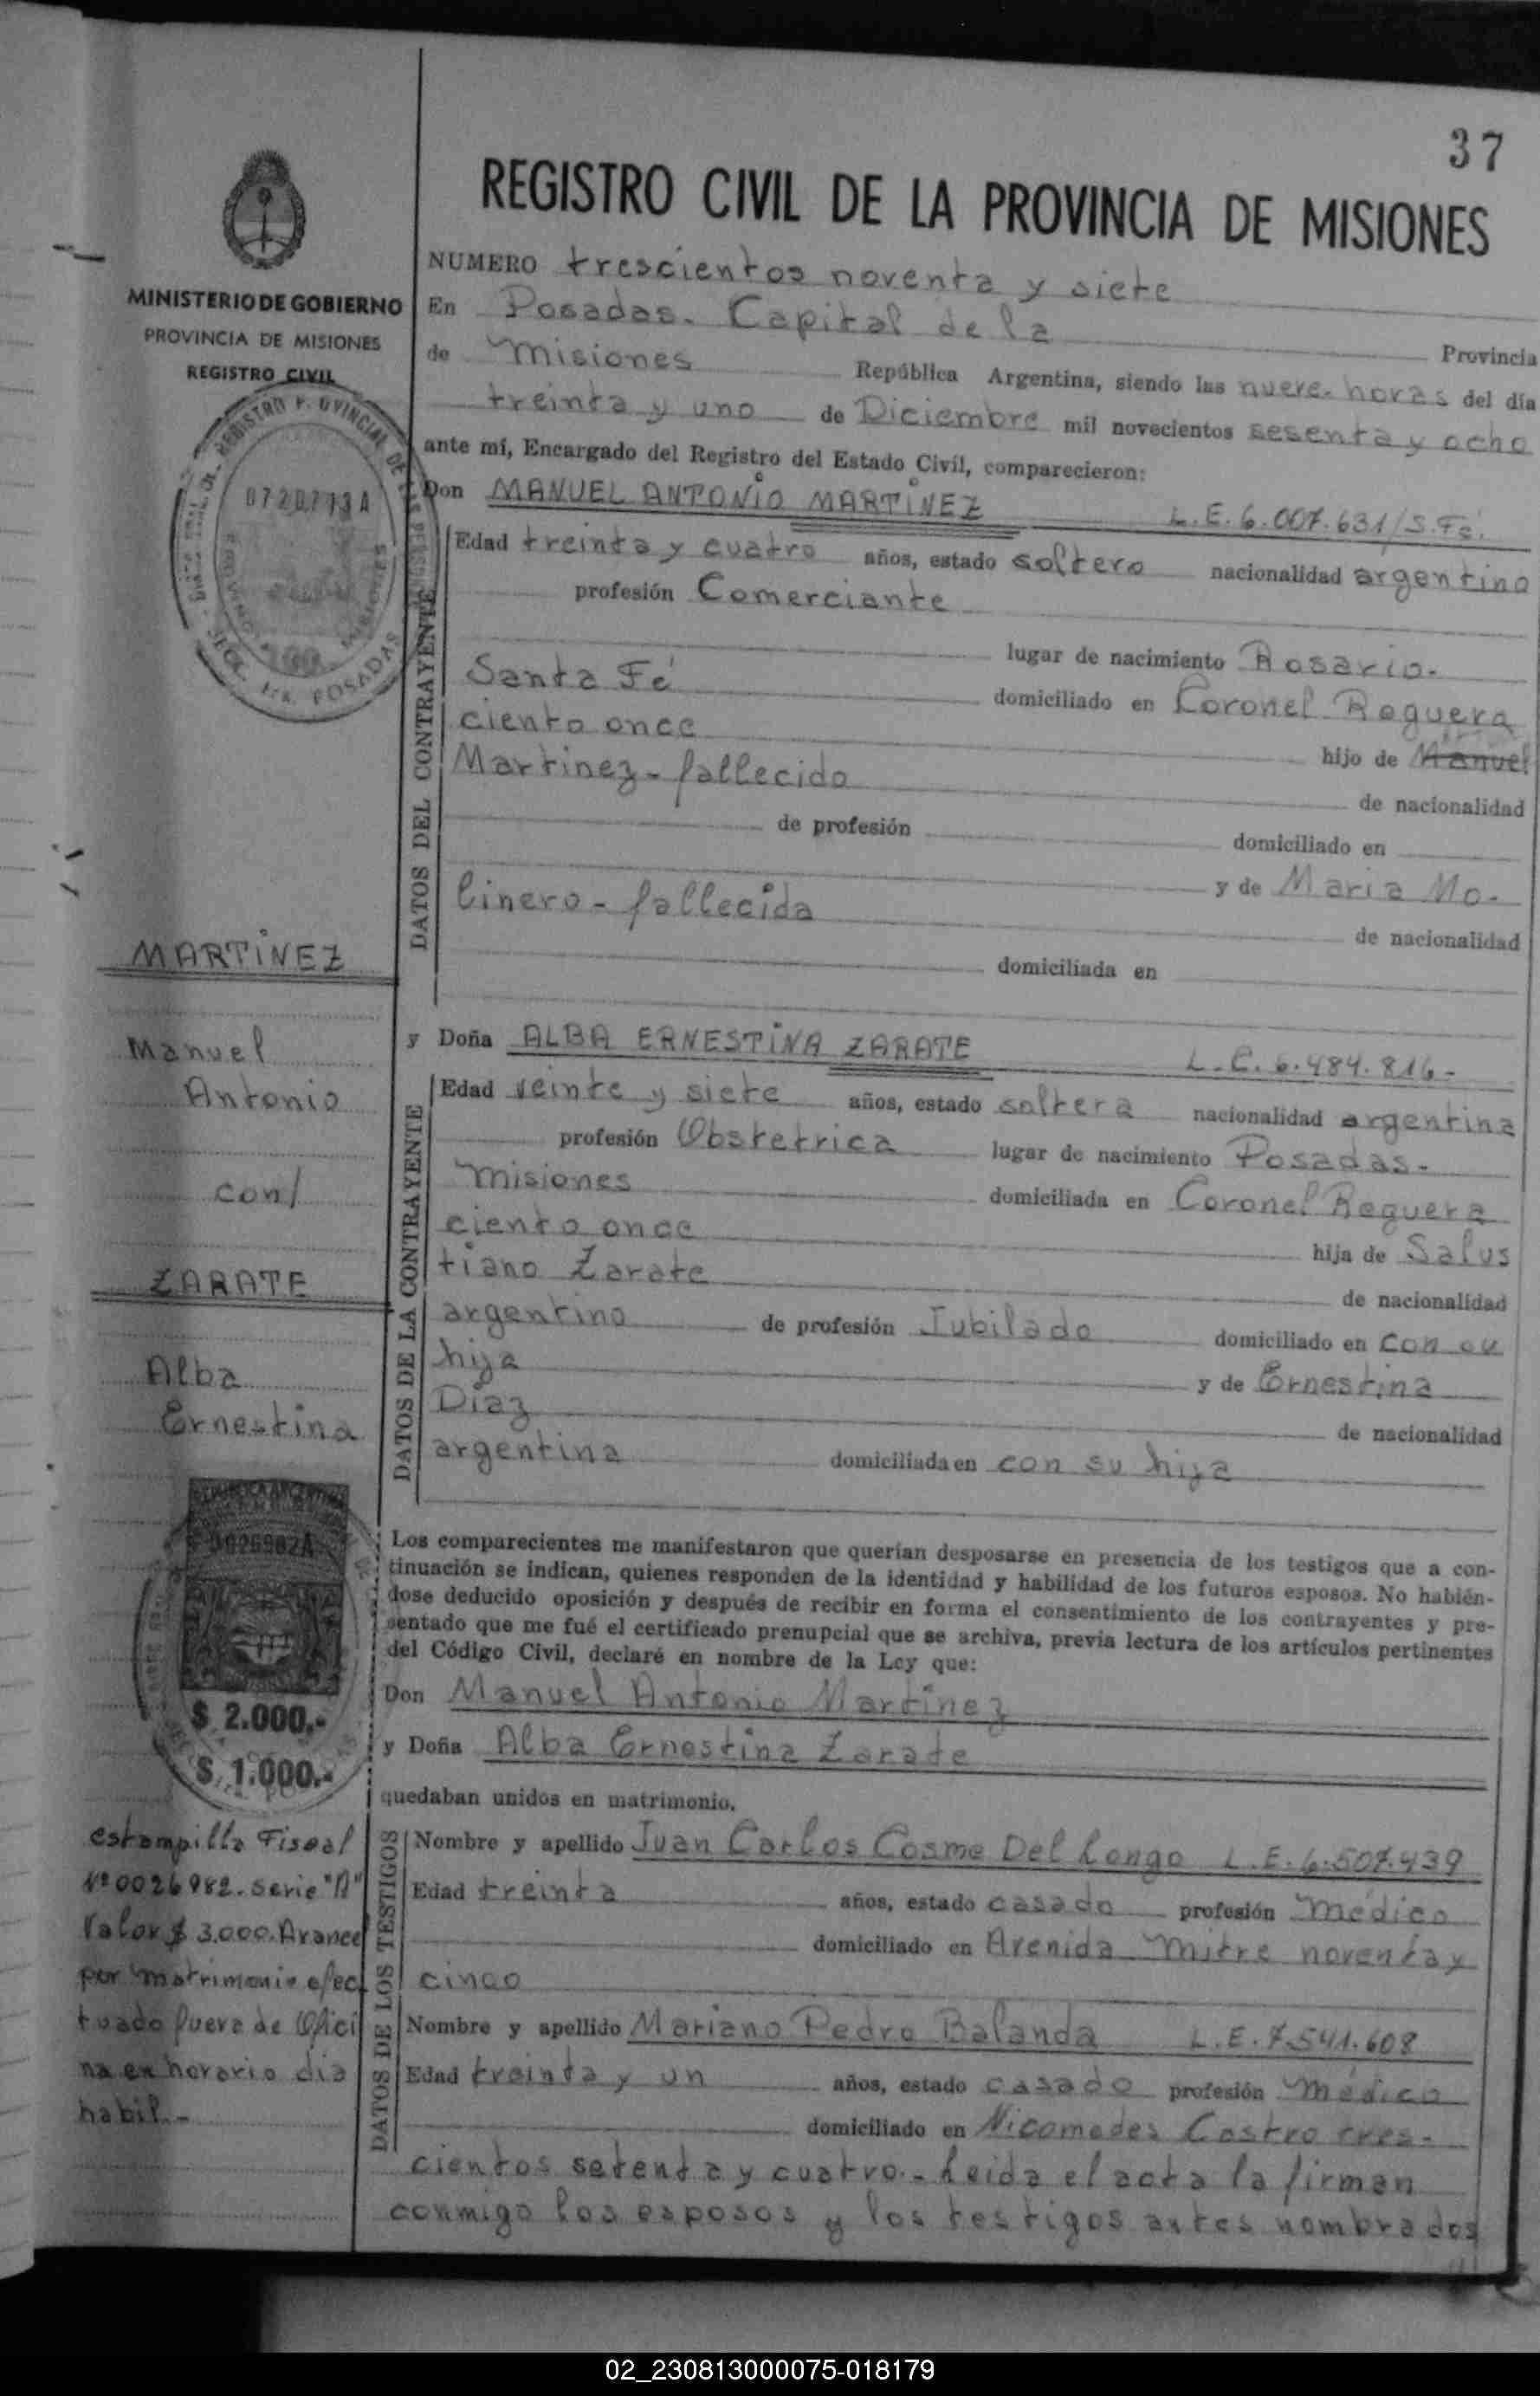 37
REGISTRO CIVIL DE LA PROVINCIA DE MISIONES
MINISTERIO DE GOBIERNO
PROVINCIA DE MISIONES
REGISTRO CIVIL
0720713A
NUMERO trescientos noventa y siete
En Posadas. Capital de la Provincia
de Misiones República Argentina, siendo las nueve horas del día
treinta y uno de Diciembre mil novecientos sesenta y ocho
ante mí, Encargado del Registro del Estado Civil, comparecieron:
Don MANUEL ANTONIO MARTINEZ L.E. 6.007.631/S.Fé.
DATOS DEL CONTRAYENTE
Edad treinta y cuatro años, estado soltero nacionalidad argentino
profesión Comerciante
lugar de nacimiento Rosario-
Santa Fé domiciliado en Coronel Reguera
ciento once hijo de Manuel
Martinez - fallecido de nacionalidad
de profesión domiciliado en
y de Maria Mo-
linero - fallecida de nacionalidad
domiciliada en
MARTINEZ
Manuel
Antonio
con/
ZARATE
Alba
Ernestina
y Doña ALBA ERNESTINA ZARATE L.C. 6.484.816-
DATOS DE LA CONTRAYENTE
Edad veinte y siete años, estado soltera nacionalidad argentina
profesión Obstetrica lugar de nacimiento Posadas-
Misiones domiciliada en Coronel Reguera
ciento once hija de Salus
tiano Zarate de nacionalidad
argentino de profesión Jubilado domiciliado en con su
hija y de Ernestina
Diaz de nacionalidad
argentina domiciliada en con su hija
Los comparecientes me manifestaron que querían desposarse en presencia de los testigos que a con-
tinuación se indican, quienes responden de la identidad y habilidad de los futuros esposos. No habién-
dose deducido oposición y después de recibir en forma el consentimiento de los contrayentes y pre-
sentado que me fué el certificado prenupcial que se archiva, previa lectura de los artículos pertinentes
del Código Civil, declaré en nombre de la Ley que:
Don Manuel Antonio Martinez
y Doña Alba Ernestina Zarate
quedaban unidos en matrimonio.
REPUBLICA ARGENTINA
0026982A
$ 2.000.-
$ 1.000.-
estampilla Fiscal
Nº 0026982. serie "A"
Valor $ 3.000. Arancel
por matrimonio efec
tuado fuera de Ofici
na en horario dia
habil.-
DATOS DE LOS TESTIGOS
Nombre y apellido Juan Carlos Cosme Del Longo L.E. 6.507.439
Edad treinta años, estado casado profesión Médico
domiciliado en Avenida Mitre noventa y
cinco
Nombre y apellido Mariano Pedro Balanda L.E. 7.541.608
Edad treinta y un años, estado casado profesión Médico
domiciliado en Nicomedes Castro tres-
cientos setenta y cuatro.- Leida el acta la firman
conmigo los esposos y los testigos antes nombrados
02_230813000075-018179